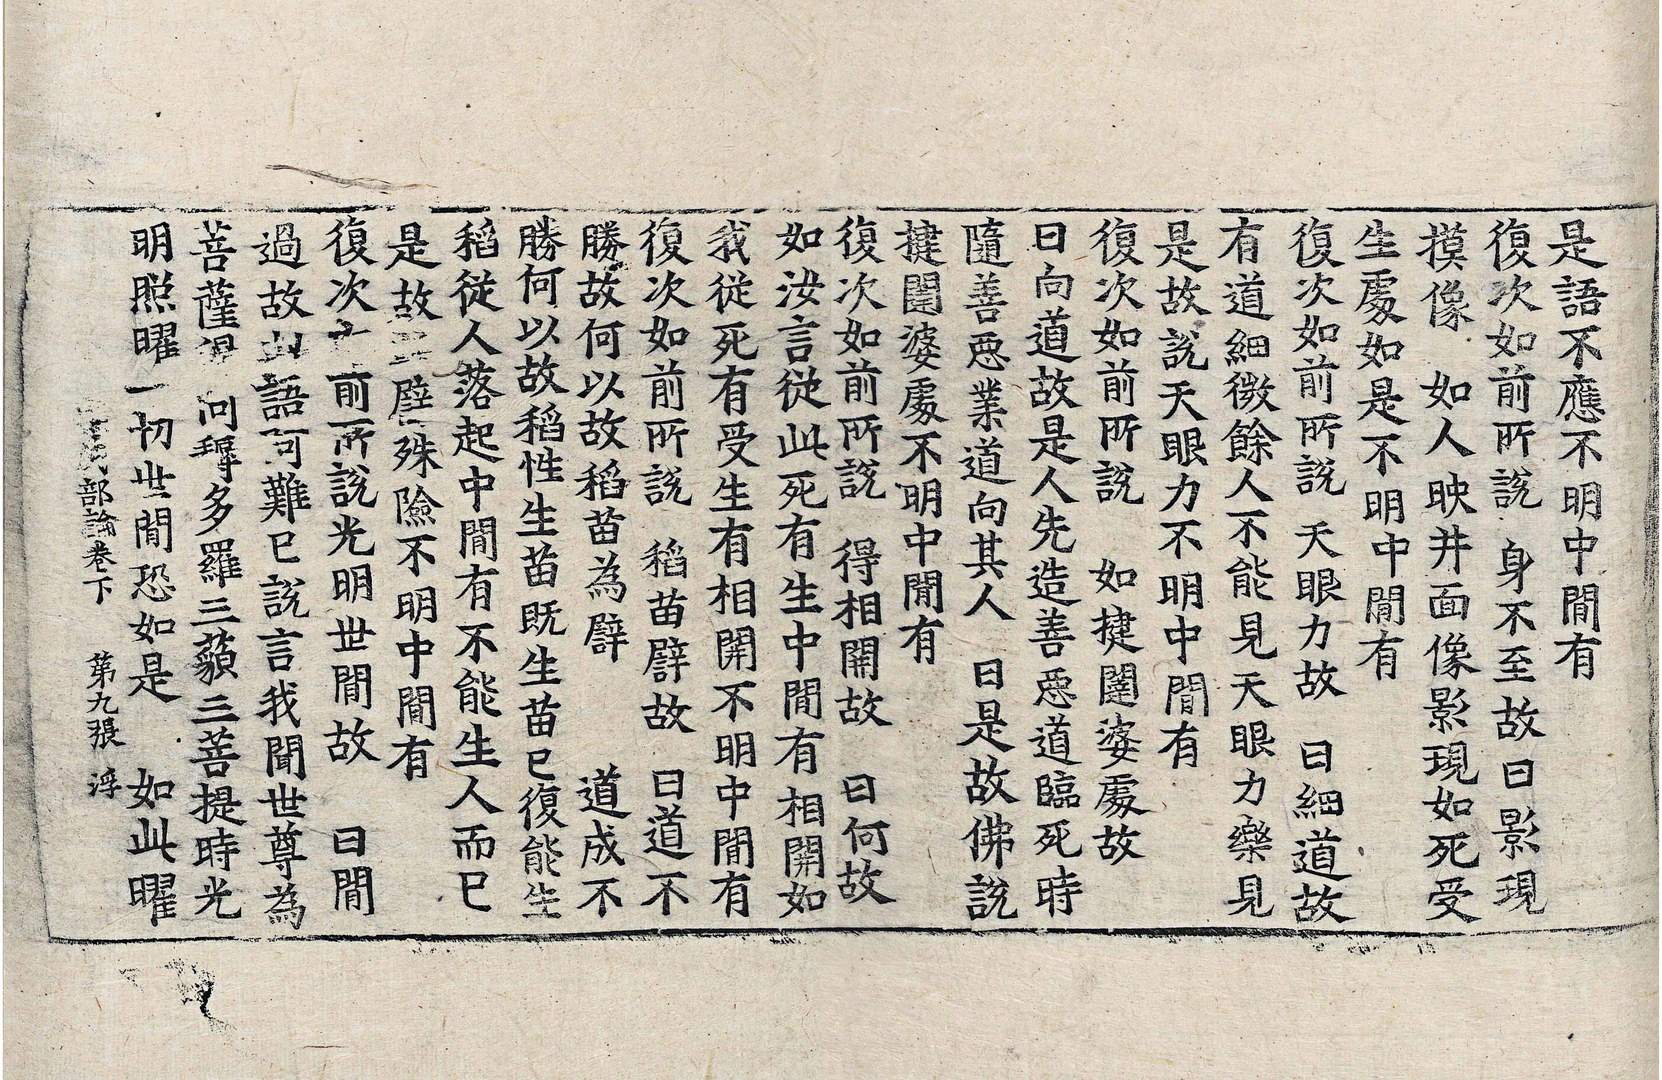 是語不應不明中間有
復次如前所說 身不至故曰影現
摸像 如人映井面像影現如死受
生處如是不明中間有
復次如前所說 天眼力故 曰細道故
有道細微餘人不能見天眼力樂見
是故說天眼力不明中間有
復次如前所說 如揵闥婆處故
曰向道故是人先造善惡道臨死時
隨善惡業道向其人 曰是故佛說
揵闥婆處不明中間有
復次如前所說 得相開故 曰何故
如汝言從此死有生中間有相開如
我從死有受生有相開不明中間有
復次如前所說 稻苗譬故 曰道不
勝故何以故稻苗為譬 道成不
勝何以故稻性生苗既生苗已復能生
稻從人落起中間有不能生人而已
是故 譬殊險不明中間有
復次 前所說光明世間故 曰間
過故此語可難已說言我聞世尊為
菩薩得 向耨多羅三藐三菩提時光
明照曜一切世間恐如是 如此曜
部論卷下 第九張 浮